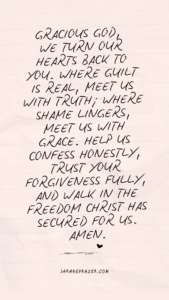 GRACIOUS GOD,
WE TURN OUR
HEARTS BACK TO
YOU. WHERE GUILT
IS REAL, MEET US
WITH TRUTH; WHERE
SHAME LINGERS,
MEET US WITH
GRACE. HELP US
CONFESS HONESTLY,
TRUST YOUR
FORGIVENESS FULLY,
AND WALK IN THE
FREEDOM CHRIST HAS
SECURED FOR US.
AMEN.
SARAHEFRAZER.COM